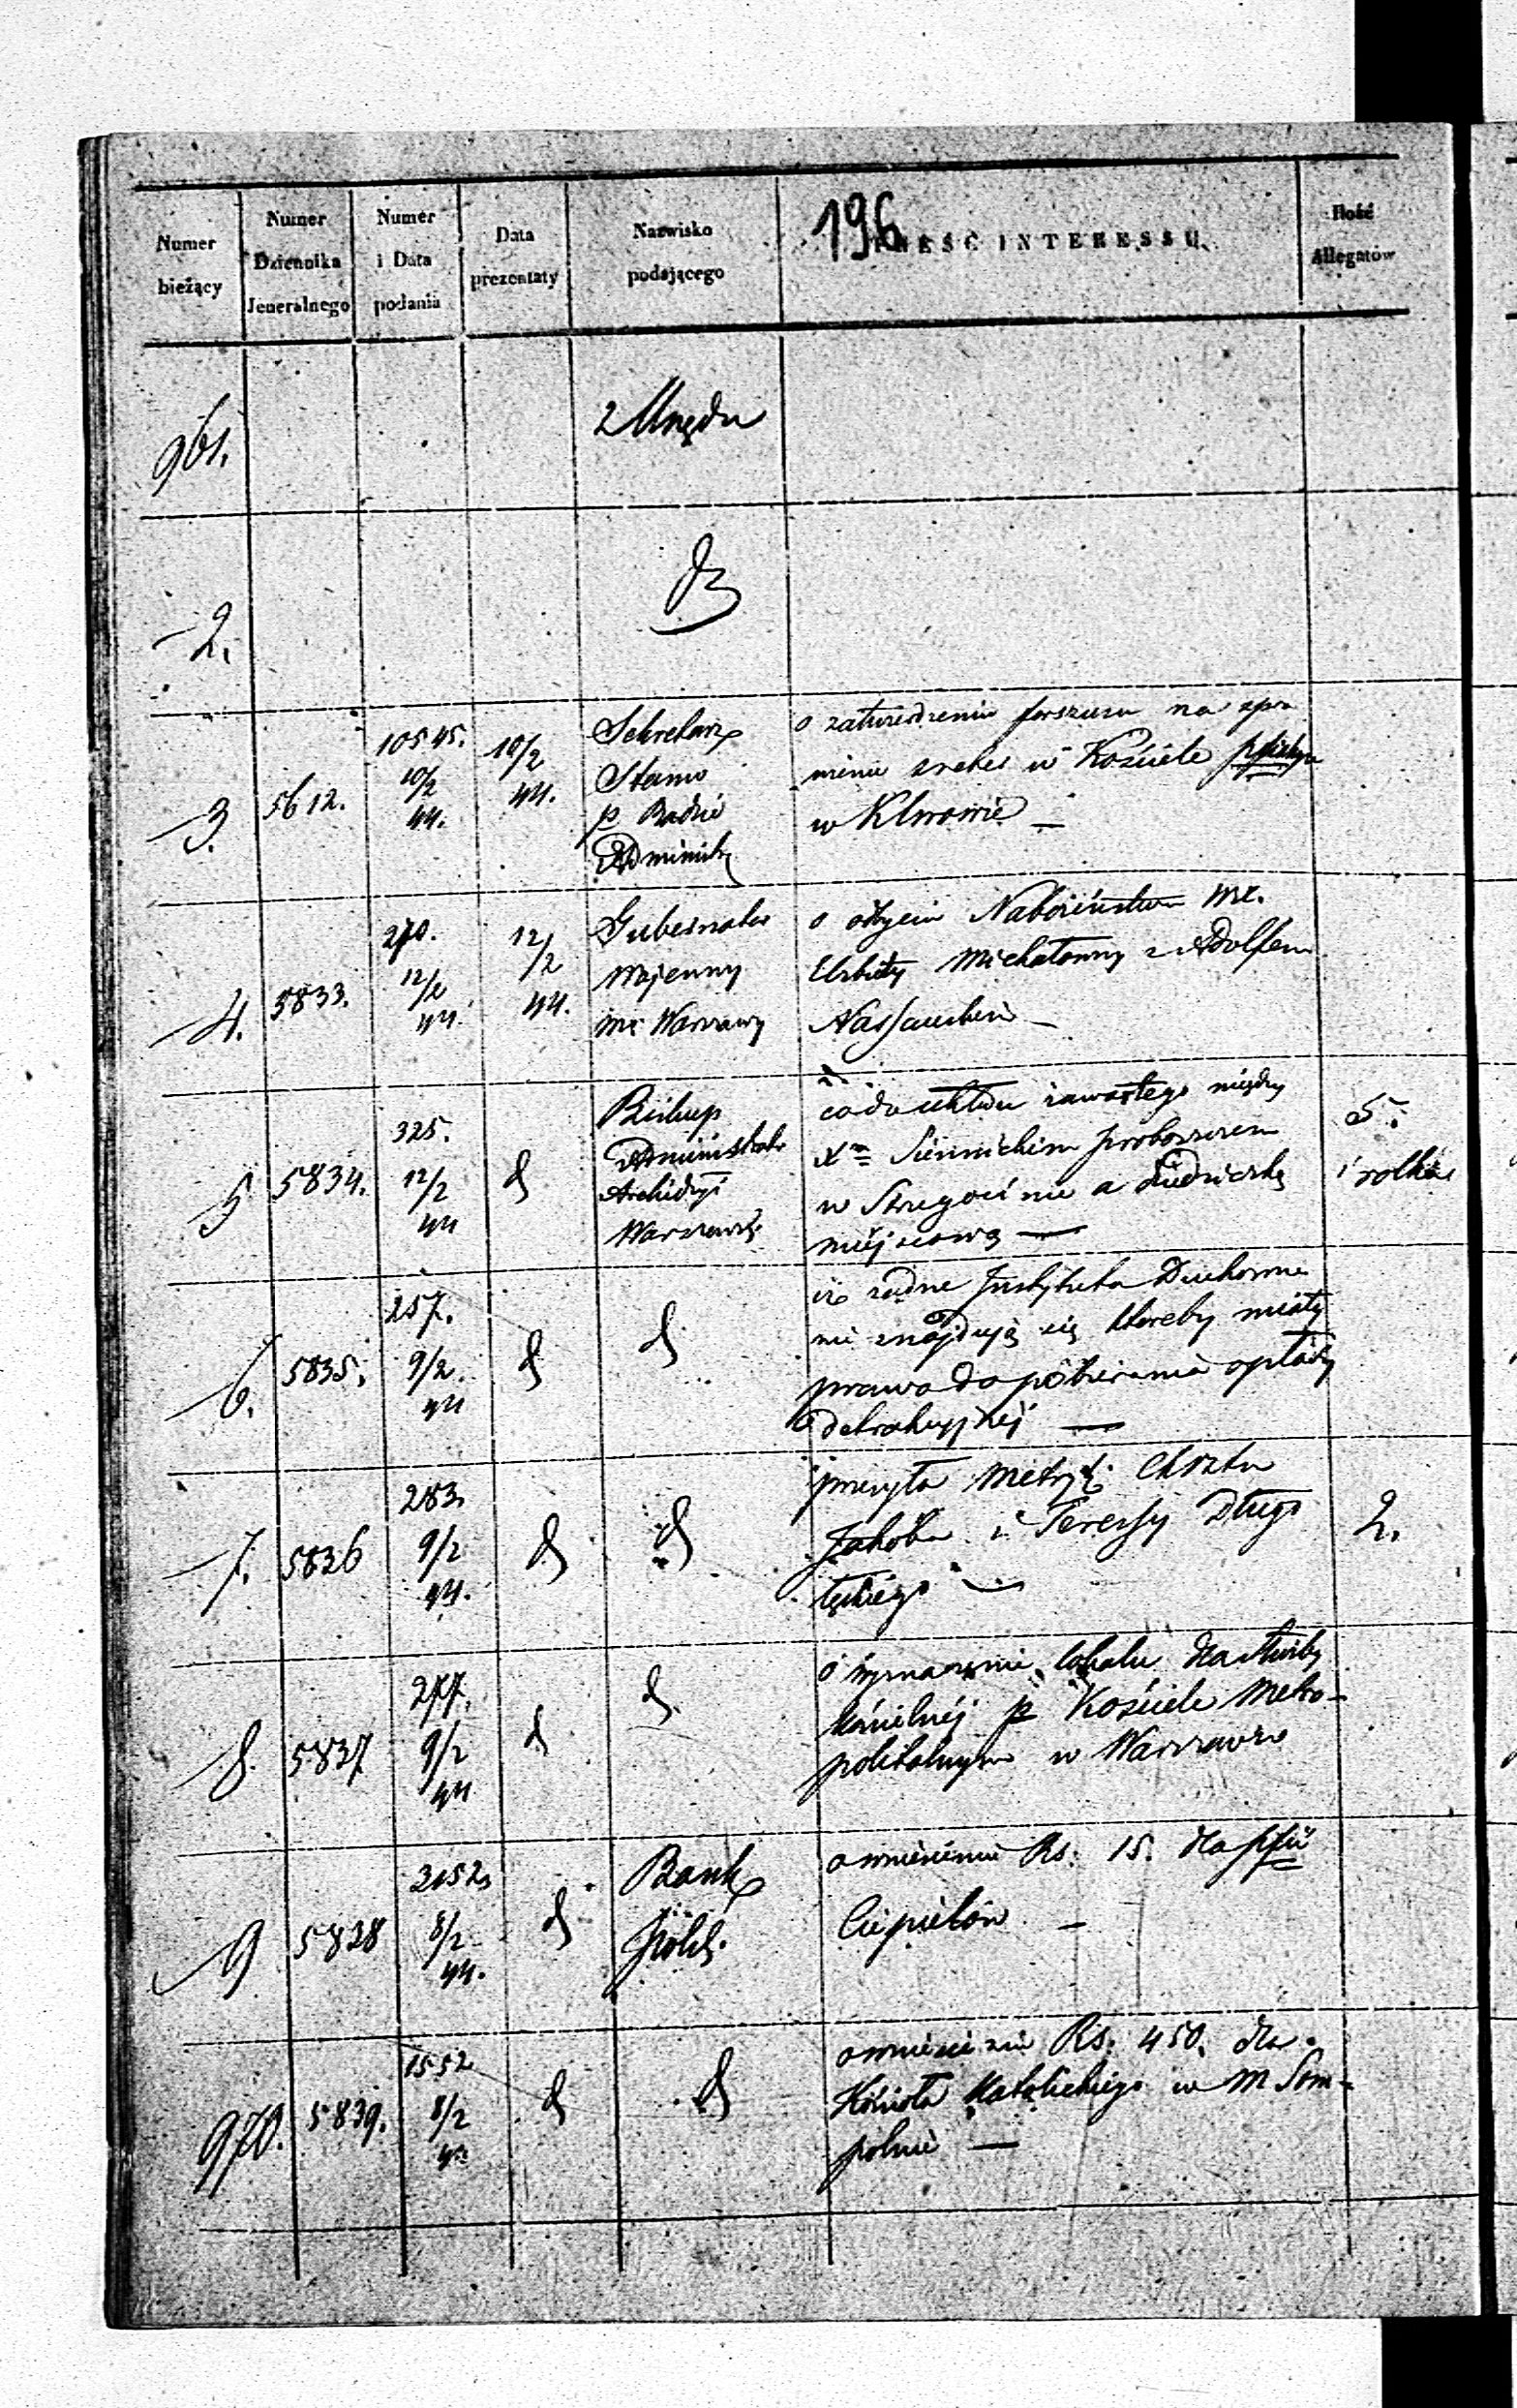 196
Numer bieżący
Numer Dziennika Jeneralnego
Numer i Data podania
Data prezentaty
Nazwisko podającego
TREŚĆ INTERESSU.
Ilość Allegatów
961.
z Urzędu
2.
3. 5612.
10545. 10/2 44.
10/2 44.
Sekretarz
Stanu
p Radzie
Administ
o zatwierdzeniu
na spra
wienie w Kościele
w Klwowie —
4. 5833.
270. 12/2 44.
12/2 44.
Gubernator
Wojenny
mc Warszawy
o odbyciu Nabożeństwa
Michałowny z Adolfem
5 5834.
325. 12/2 44
d
Biskup
Administrator
Archidyi
Warszawsk.
co do układu zawartego między
Xm Siennickim proboszczem
w Stregocinie a Dziedziczką
miejscową —
5.
i rolka
6. 5835.
257. 9/2. 44
d
d
iż żadne Instytuta Duchowne
nie znajdują się któreby miały
prawo do pobierania opłaty
detrakcyjnej —
7. 5836
283. 9/2 44.
d
d
przesyła Metryk. Chrztu
Jakóba i Teressy Długo
łęckiego —
2.
8. 5837
277. 9/2 44
d
d.
o wyznaczenie lokalu dla służby
kościelnéj p Kościele Metro-
politalnym w Warszawie
9 5838
3152. 8/2 44.
d
Bank
Polsk.
o wniesienie Rs. 15. dla
Ciepielów —
970. 5839.
1552 8/2 44
d
d
o wniesienie Rs. 450. dla
Kościoła Katolickiego w M Som-
polnie —